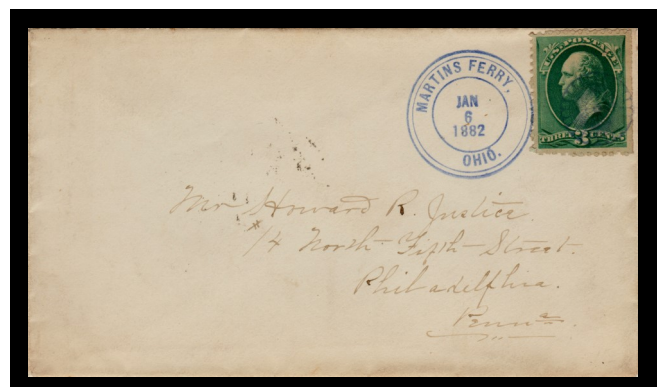 MARTINS FERRY,
JAN
6
1882
OHIO.
U.S. POSTAGE
THREE 3 CENTS
Mr Howard R. Justice.
14 North Fifth Street.
Philadelphia.
Penna.